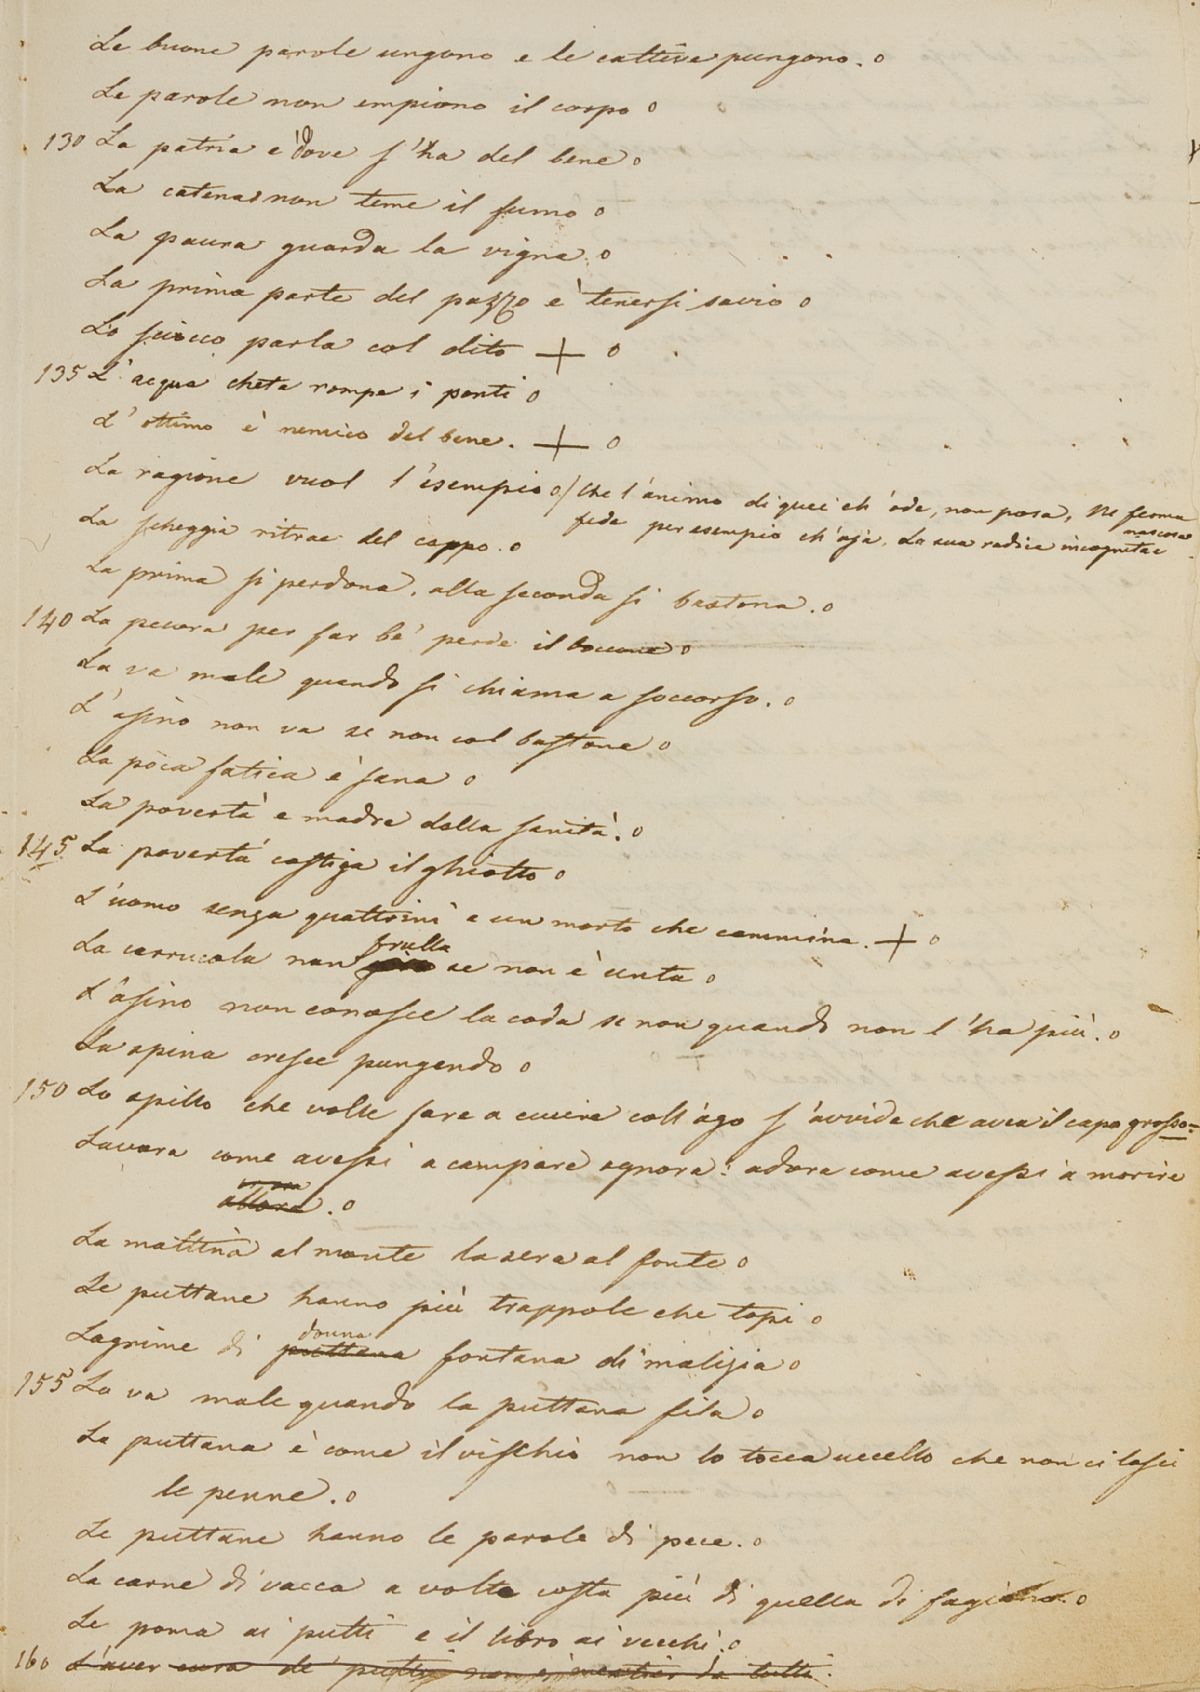 Le buone parole ungono e le cattive pungono.
Le parole non empiono il corpo
130 La patria è dove s'ha del bene
La catena non teme il fumo
La paura guarda la vigna
La prima parte del pazzo è tenersi savio
Lo sciocco parla col dito +
135 L'acqua cheta rompe i ponti
L'ottimo è nemico del bene. +
La ragione vuol l'esempio / Che l'animo di quei ch'ode, non posa, Ne ferma
fede per esempio ch'aja La sua radice incognita e
nascosa
La scheggia ritrae del ceppo.
La prima si perdona, alla seconda si bastona.
140 La pecora per far be' perde il boccone
La va male quando si chiama a soccorso.
L'asino non va se non col bastone
La poca fatica è sana
La povertà e madre della sanità.
145 La povertà castiga il ghiotto
L'uomo senza quattrini e un morto che cammina. +
La carrucola non frulla se non è unta
L'asino non conosce la coda se non quando non l'ha più.
La spina cresce pungendo
150 Lo spillo che volle fare a cucire coll'ago s'avvide che avea il capo grosso
Lavora come avessi a campare ognora: adora come avessi a morire
or ora
allora.
La mattina al monte la sera al fonte
Le puttane hanno più trappole che topi
Lagrime di donna puttana fontana di malizia
155 La va male quando la puttana fila
La puttana è come il vischio non lo tocca uccello che non ci lasci
le penne.
Le puttane hanno le parole di pece.
La carne di vacca a volte costa più di quella di fagiano.
Le poma ai putti e il libro ai vecchi.
160 L'aver cura de' putti non è mestier da tutti.